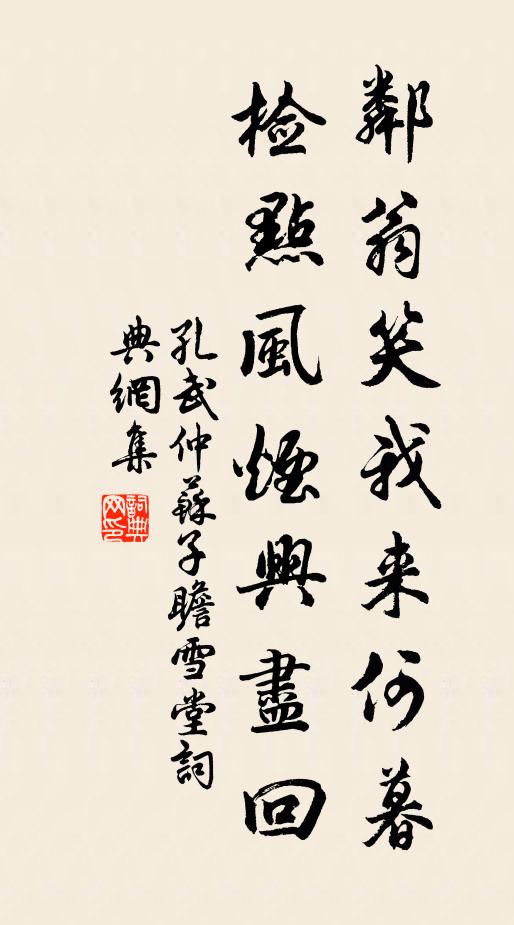 鄰翁笑我来何暮
檢點風煙興盡回
孔武仲蘇子瞻雪堂詞
典網集
詞典网印